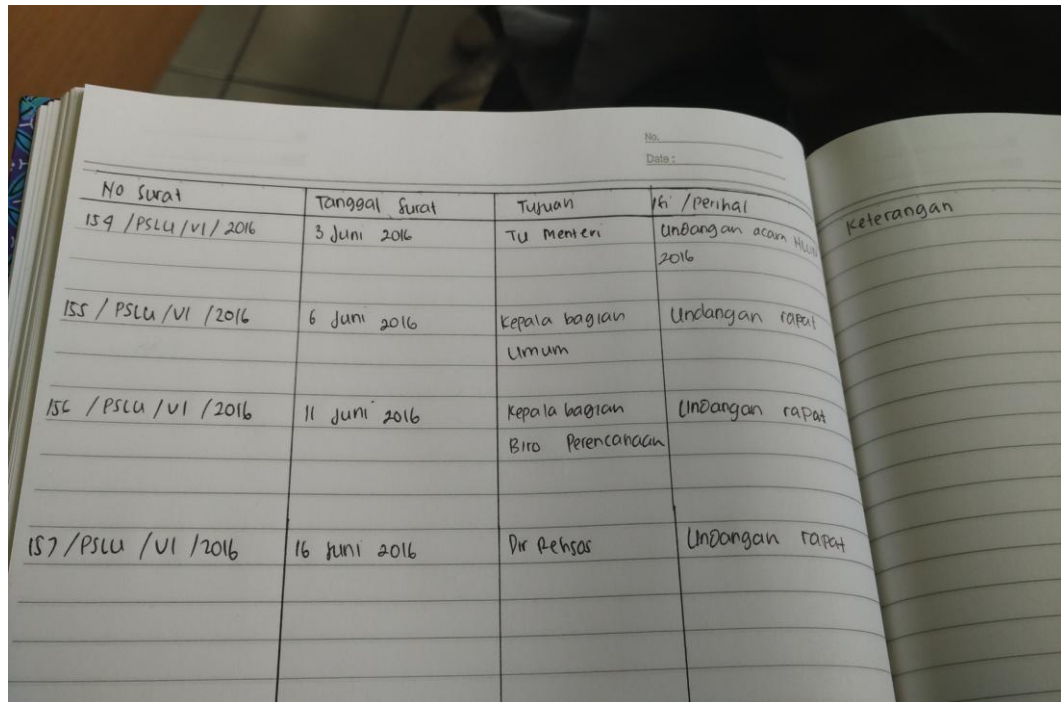 No.
Date :
No Surat Tanggal Surat Tujuan Isi / Perihal Keterangan
154 / PSLU / VI / 2016 3 Juni 2016 TU Menteri Undangan acara HLUN
2016
155 / PSLU / VI / 2016 6 Juni 2016 Kepala bagian Undangan rapat
Umum
156 / PSLU / VI / 2016 11 Juni 2016 Kepala bagian Undangan rapat
Biro Perencanaan
157 / PSLU / VI / 2016 16 Juni 2016 Dir Rehsos Undangan rapat